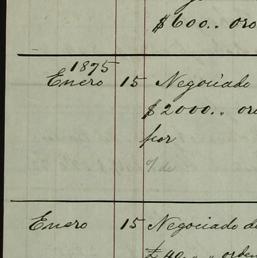 $600.. oro
1875
Enero 15 Negociado
$2000.. oro
por
%de
Enero 15 Negociado de
£40.. orden